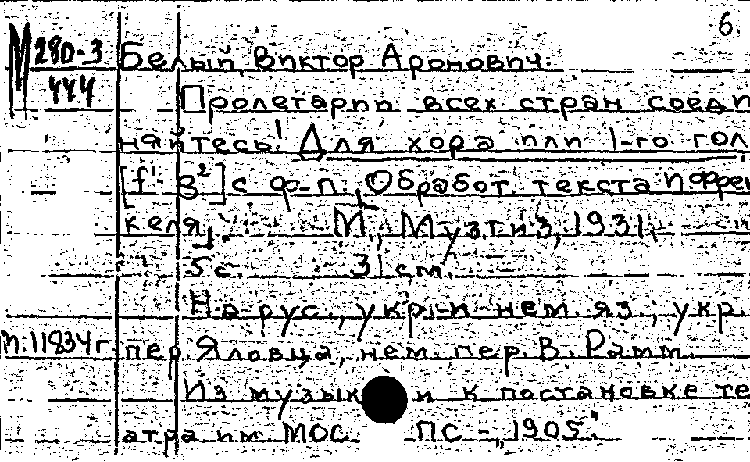 6.
М 280-3 Белый, Виктор Аронович.
444 Пролетарии всех стран соеди
няйтесь! Для хора или 1-го гол
[f¹-g²] с ф-п. Обработ. текста И. Френ
келя. М., Музгиз, 1931.
5 с. 31 см.
На рус., укр. и нем. яз., укр.
п. 11834г пер. Яловца, нем. пер. В. Рамм.
Из музык и к постановке те
атра им. МОС ПС - "1905"